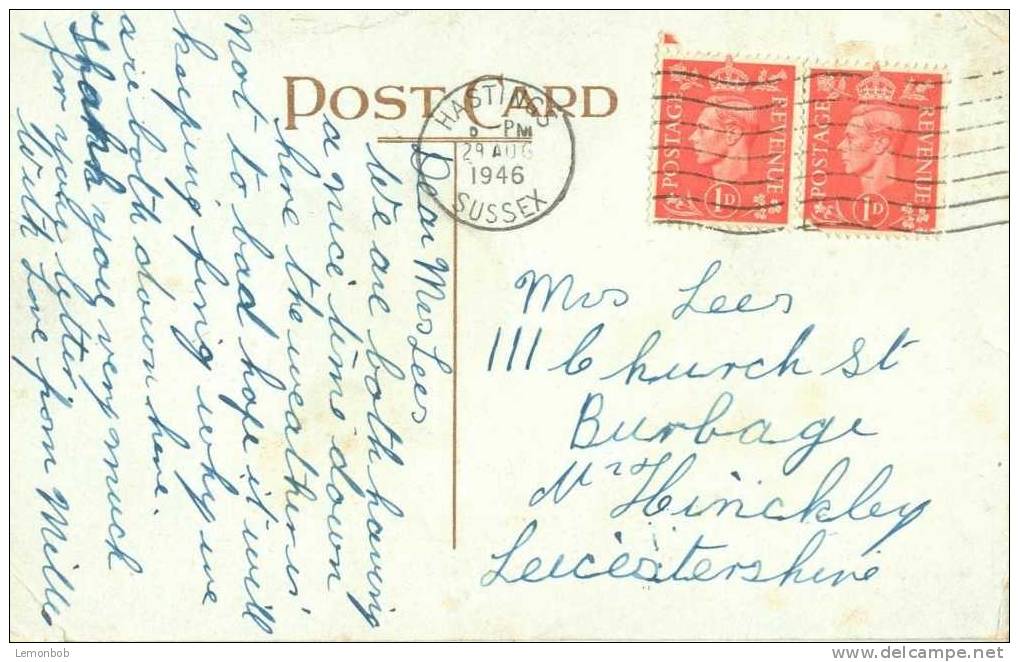 POST CARD
HASTINGS
6 PM
29 AUG
1946
SUSSEX
POSTAGE REVENUE
1D
POSTAGE REVENUE
1D
Dear Mrs Lees
We are both having
a nice time down
here the weather is
not to bad hope it will
keeping fing why we
are both down here
thank you very much
for your letter
With Love from
Mrs Lees
111 Church St
Burbage
Nr Hinckley
Leicestershire
Lemonbob
www.delcampe.net